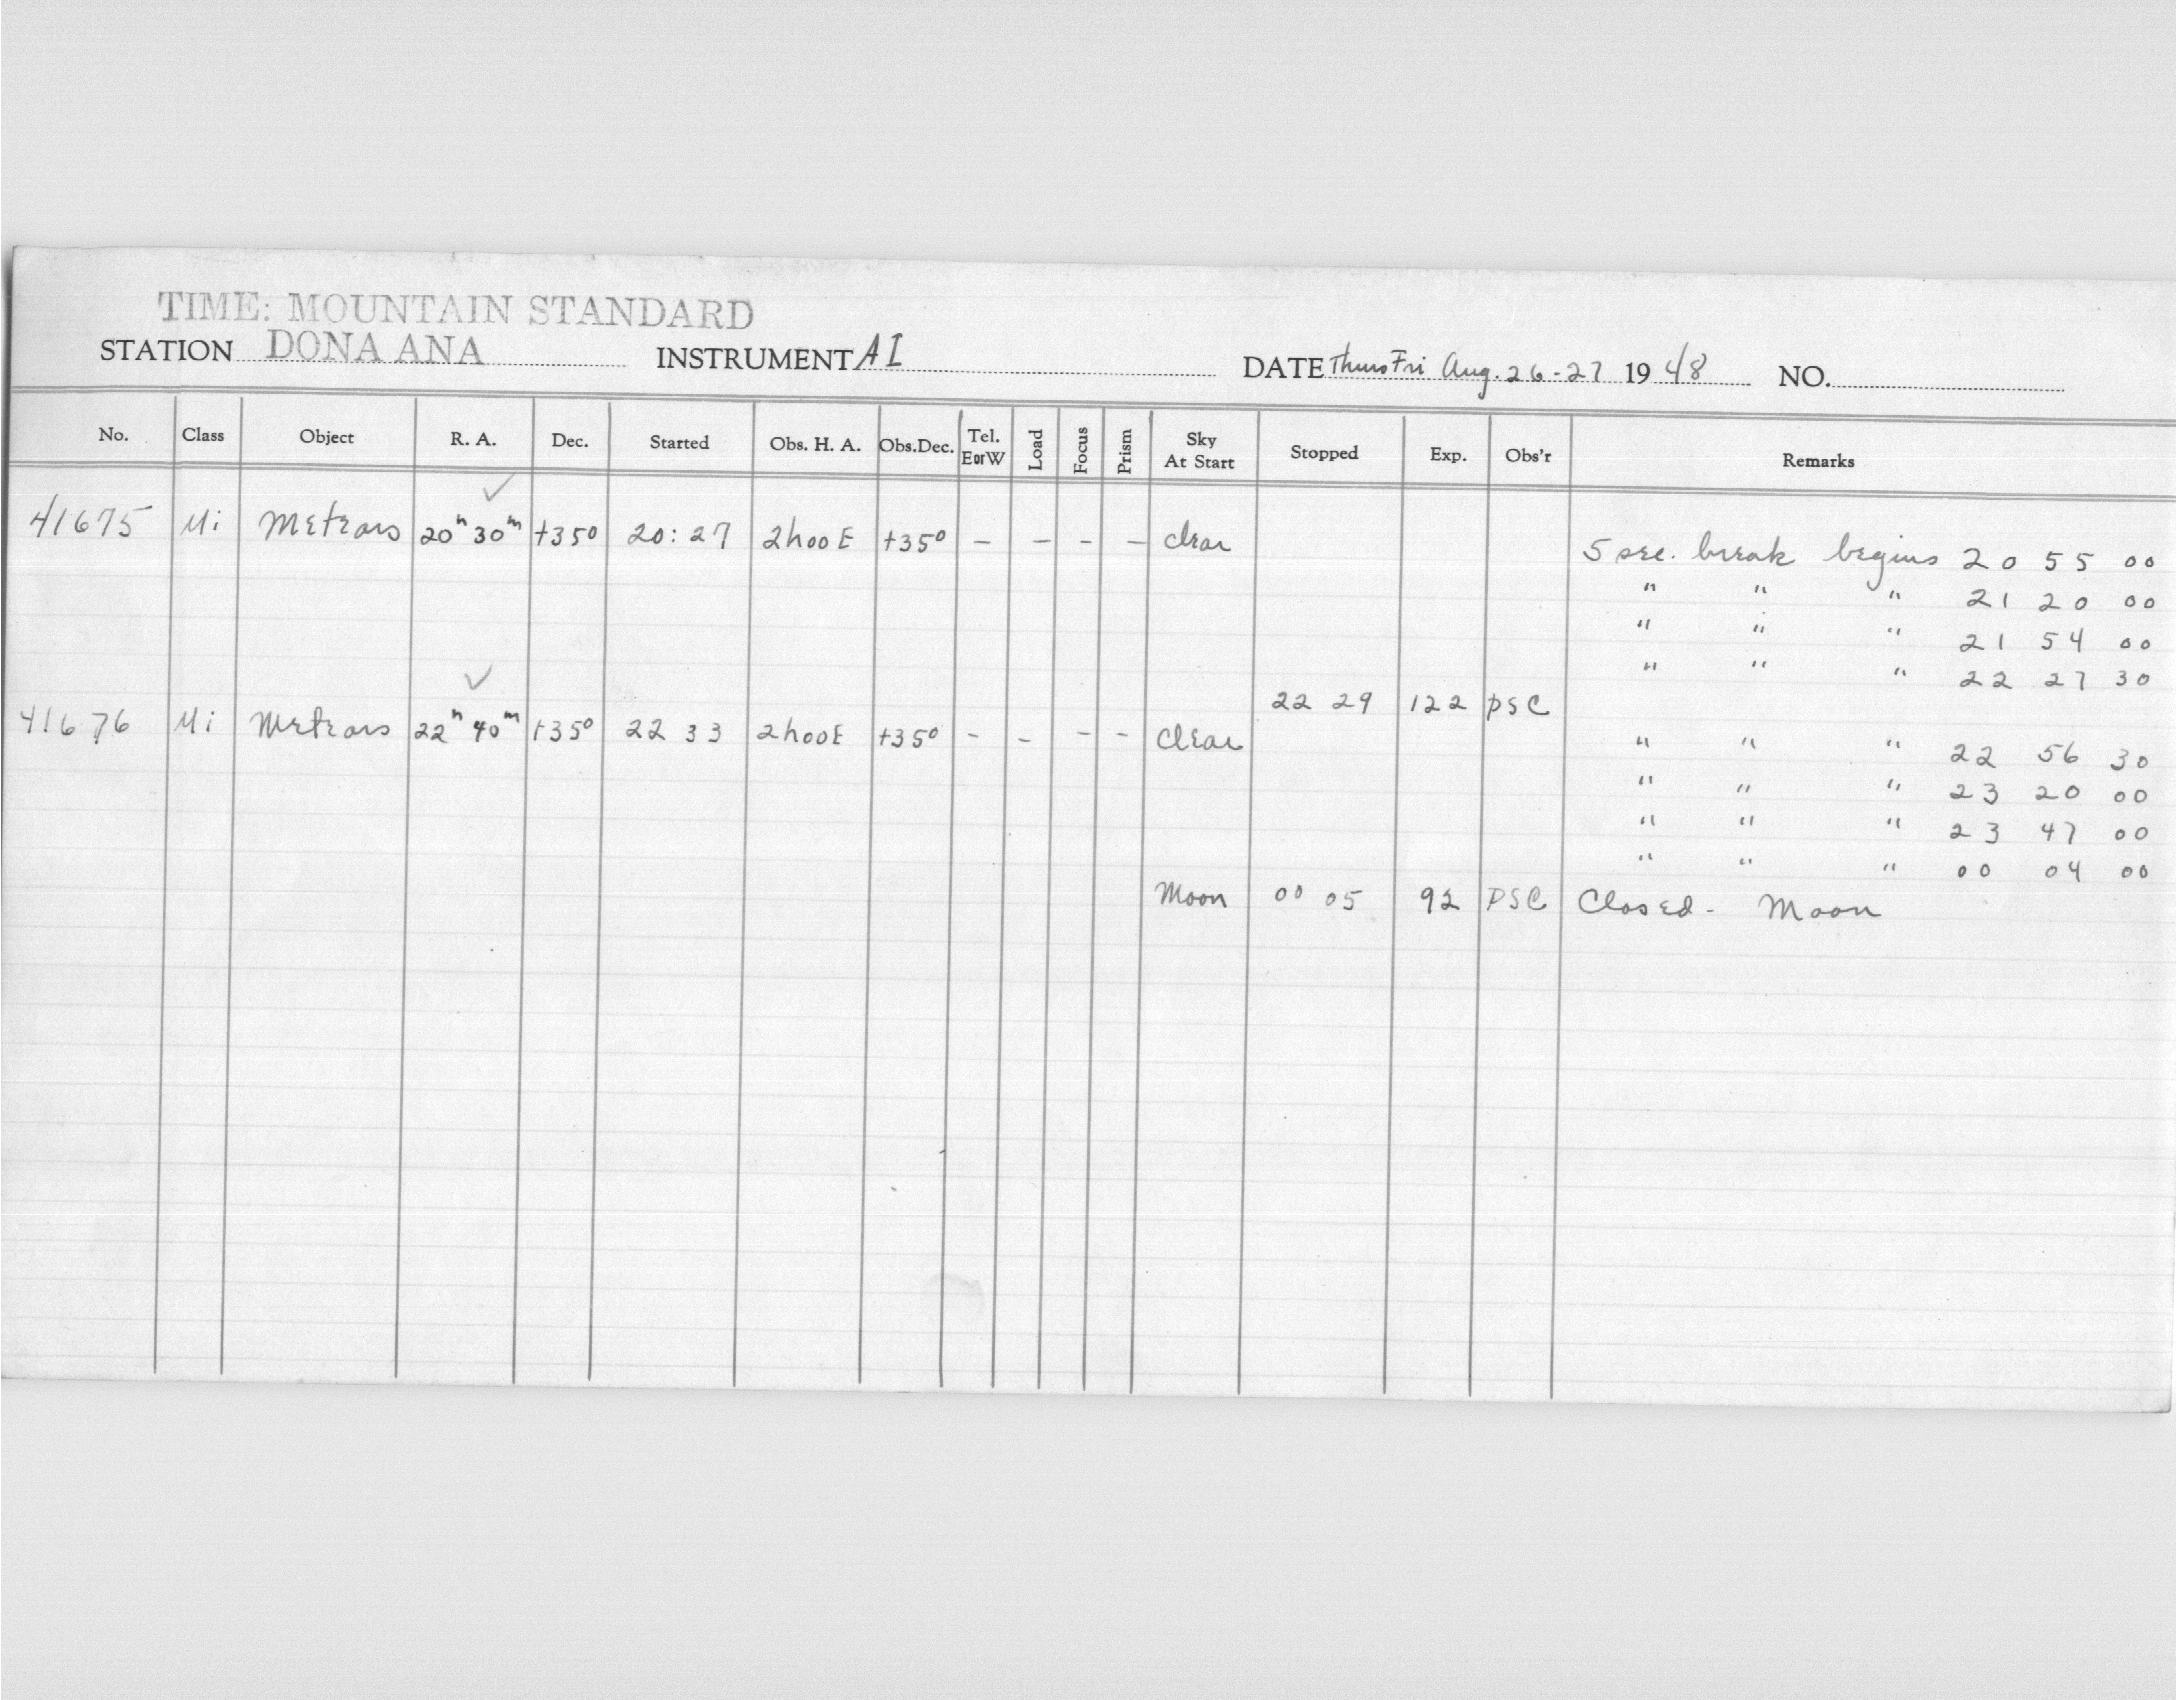 TIME: MOUNTAIN STANDARD
STATION DONA ANA INSTRUMENT AI DATE Thurs Fri Aug. 26-27 1948 NO.
No. Class Object R. A. Dec. Started Obs. H. A. Obs.Dec. Tel. EorW Load Focus Prism Sky At Start Stopped Exp. Obs'r Remarks
41675 Mi Meteors 20h 30m +35° 20:27 2h00E +35° – – – – clear
5 sec. break begins 20 55 00
" " " 21 20 00
" " " 21 54 00
" " " 22 27 30
22 29 122 PSC
41676 Mi Meteors 22h 40m +35° 22 33 2h00E +35° – – – – Clear
" " " 22 56 30
" " " 23 20 00
" " " 23 47 00
" " " 00 04 00
Moon 00 05 92 PSC Closed - Moon